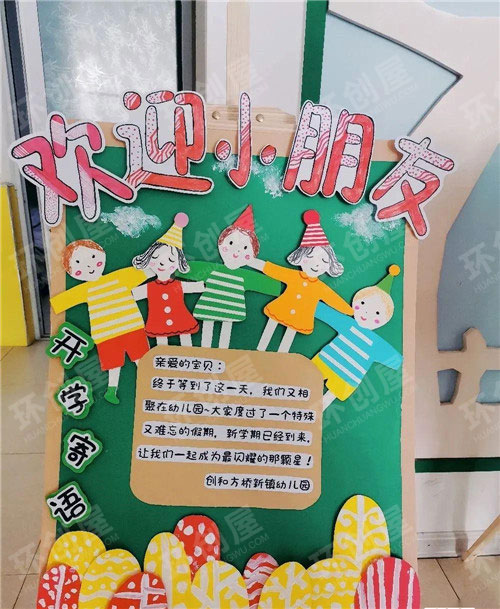 欢迎小朋友
开学寄语
亲爱的宝贝：
终于等到了这一天，我们又相
聚在幼儿园~大家度过了一个特殊
又难忘的假期，新学期已经到来，
让我们一起成为最闪耀的那颗星！
创和方桥新镇幼儿园
环创屋